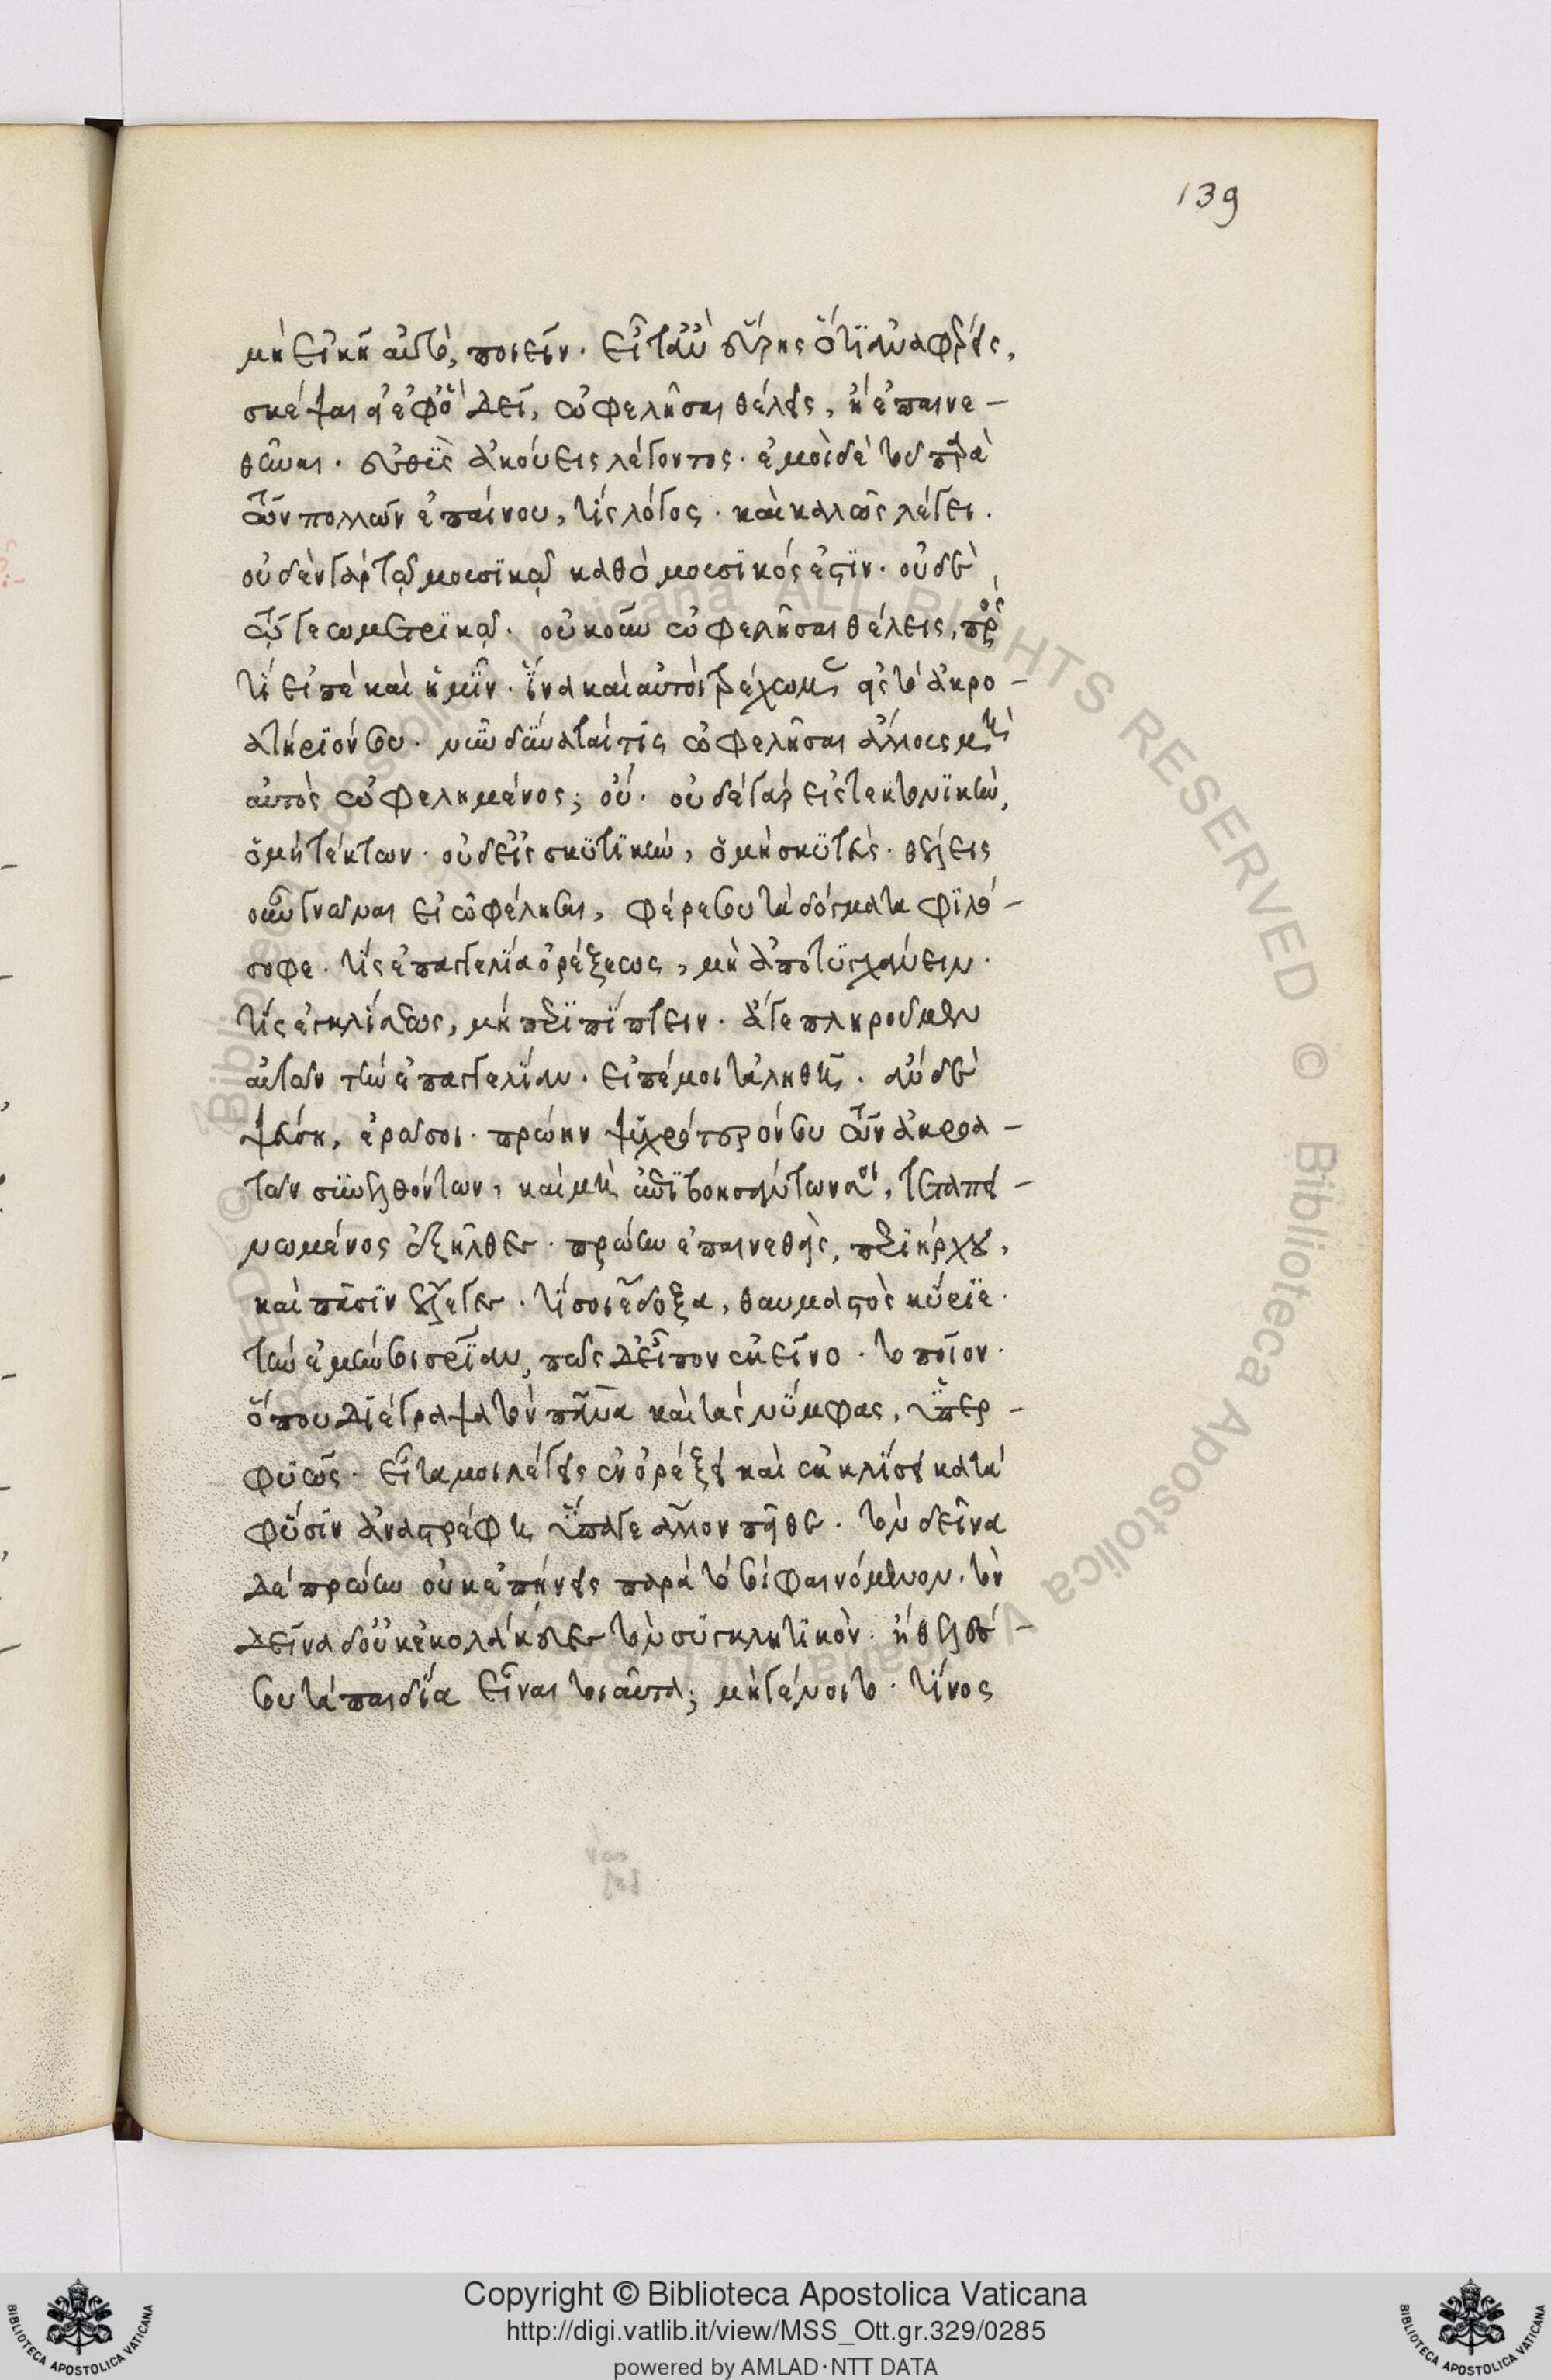 139
μὴ εἰκῆ αὐτὸ, ποιεῖν. εἶτ' ἂν εὕρης ὅτι ἀναφέρεις,
σκέψαι εἰ ἐφ' ὃ δεῖ, ὠφελῆσαι θέλεις, ἢ ἐπαινε-
θῆναι. εὐθὺς ἀκούεις λέγοντος. ἐμοὶ δὲ τοῦ παρὰ
τῶν πολλῶν ἐπαίνου, τίς λόγος. καὶ καλῶς λέγει.
οὐδὲν γὰρ τῷ μουσικῷ καθὸ μουσικός ἐστιν. οὐδὲ
τῷ γεωμετρικῷ. οὐκοῦν ὠφελῆσαι θέλεις, πρὸς
τί εἰπὲ καὶ ἡμῖν. ἵνα καὶ αὐτοὶ τρέχωμεν εἰς τὸ ἀκρο-
ατήριόν σου. νῦν δύναταί τις ὠφελῆσαι ἄλλους μὴ
αὐτὸς ὠφελημένος; οὔ. οὐδὲ γὰρ εἰς τεκτονικὴν,
ὁ μὴ τέκτων. οὐδ' εἰς σκυτικὴν, ὁ μὴ σκυτεὺς. θέλεις
οὖν γνῶναι εἰ ὠφέλησαι, φέρε σου τὰ δόγματα φιλό-
σοφε. τίς ἐπαγγελία ὀρέξεως, μὴ ἀποτυγχάνειν.
τίς ἐκκλίσεως, μὴ περιπίπτειν. ἄγε πληροῦμεν
αὐτῶν τὴν ἐπαγγελίαν. εἰπέ μοι τἀληθῆ. ἂν δὲ
ψεύσῃ, ἐρῶ σοι. πρώην ψυχρότερόν σου τῶν ἀκροα-
τῶν συνελθόντων, καὶ μὴ ἐπιβοησάντων σοι, τεταπει-
νωμένος ἐξῆλθες. πρώην ἐπαινεθεὶς, περιήρχου,
καὶ πᾶσιν ἔλεγες. τί σοι ἔδοξα, θαυμαστὸς κύριε.
τὴν ἐμήν σοι σωτηρίαν, πῶς δ' εἶπον ἐκεῖνο. τὸ ποῖον.
ὅπου διέγραψα τὸν πᾶνα καὶ τὰς νύμφας, ὑπερ-
φυῶς. εἶτά μοι λέγεις ἐν ὀρέξει καὶ ἐκκλίσει κατὰ
φύσιν ἀναστρέφῃ, ὕπαγε ἄλλον πεῖθε. τὸν δεῖνα
δὲ πρώην οὐκ ἐπῄνεις παρὰ τό σοι φαινόμενον. τὸν
δεῖνα δ' οὐκ ἐκολάκευες τὸν συγκλητικόν. ἤθελές
σου τὰ παιδία εἶναι τοιαῦτα; μὴ γένοιτο. τίνος
Copyright © Biblioteca Apostolica Vaticana
http://digi.vatlib.it/view/MSS_Ott.gr.329/0285
powered by AMLAD·NTT DATA